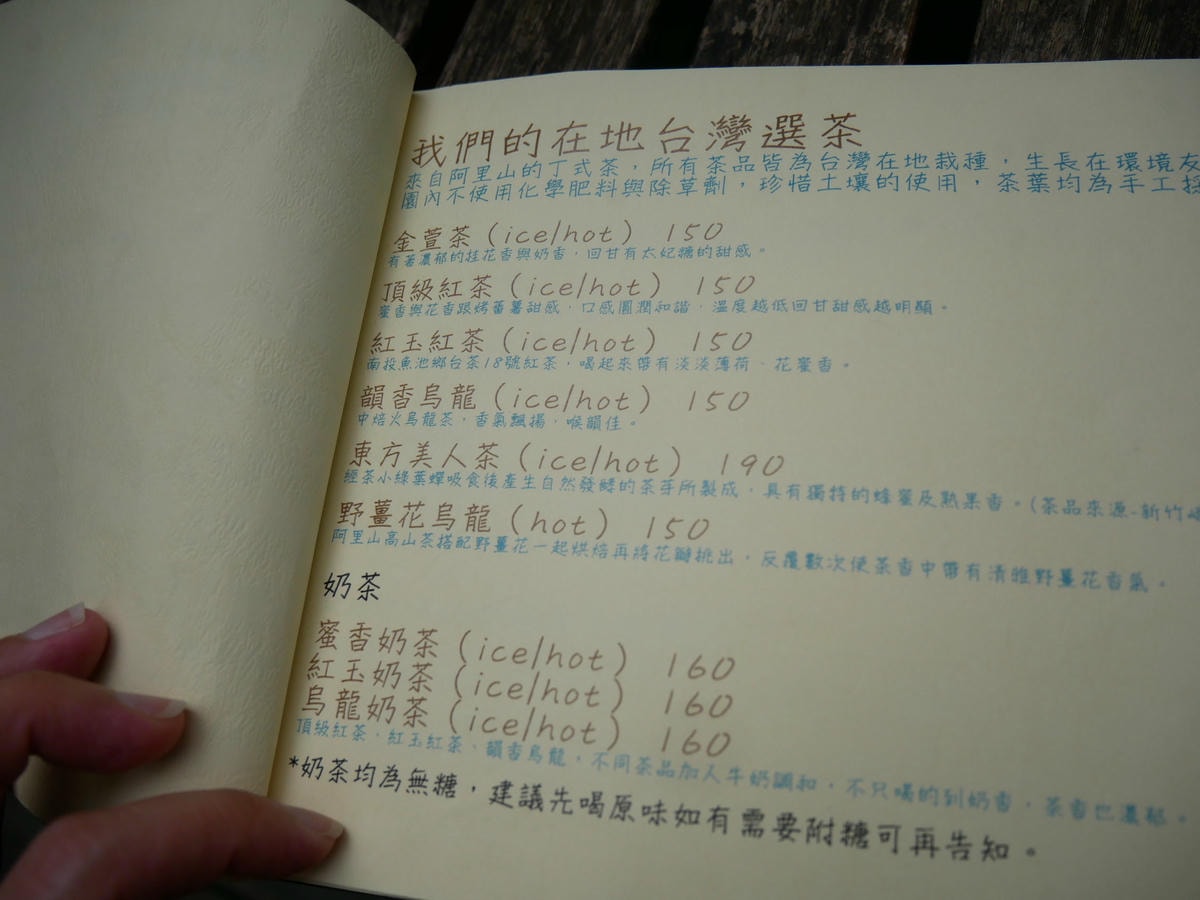 我們的在地台灣選茶
來自阿里山的丁式茶，所有茶品皆為台灣在地栽種，生長在環境友
園內不使用化學肥料與除草劑，珍惜土壤的使用，茶葉均為手工採
金萱茶 (ice/hot) 150
有著濃郁的桂花香與奶香，回甘有太妃糖的甜感。
頂級紅茶 (ice/hot) 150
蜜香與花香跟烤蕃薯甜感，口感圓潤和諧，溫度越低回甘甜感越明顯。
紅玉紅茶 (ice/hot) 150
南投魚池鄉台茶18號紅茶，喝起來帶有淡淡薄荷、花蜜香。
韻香烏龍 (ice/hot) 150
中焙火烏龍茶，香氣飄揚，喉韻佳。
東方美人茶 (ice/hot) 190
經茶小綠葉蟬吸食後產生自然發酵的茶芽所製成，具有獨特的蜂蜜及熟果香。(茶品來源-新竹
野薑花烏龍 (hot) 150
阿里山高山茶搭配野薑花一起烘焙再將花瓣挑出，反覆數次使茶香中帶有清雅野薑花香氣。
奶茶
蜜香奶茶 (ice/hot) 160
紅玉奶茶 (ice/hot) 160
烏龍奶茶 (ice/hot) 160
頂級紅茶、紅玉紅茶、韻香烏龍，不同茶品加入牛奶調和，不只喝的到奶香，茶香也濃郁。
*奶茶均為無糖，建議先喝原味如有需要附糖可再告知。